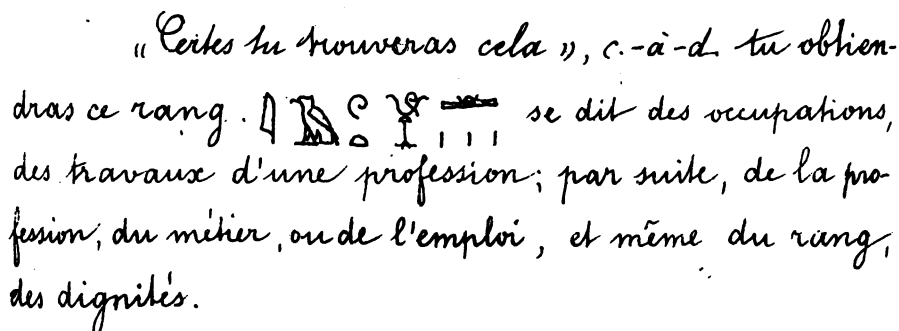 „Certes tu trouveras cela », c.-à-d. tu obtien-
dras ce rang. se dit des occupations,
des travaux d'une profession; par suite, de la pro-
fession, du métier, ou de l'emploi, et même du rang,
des dignités.